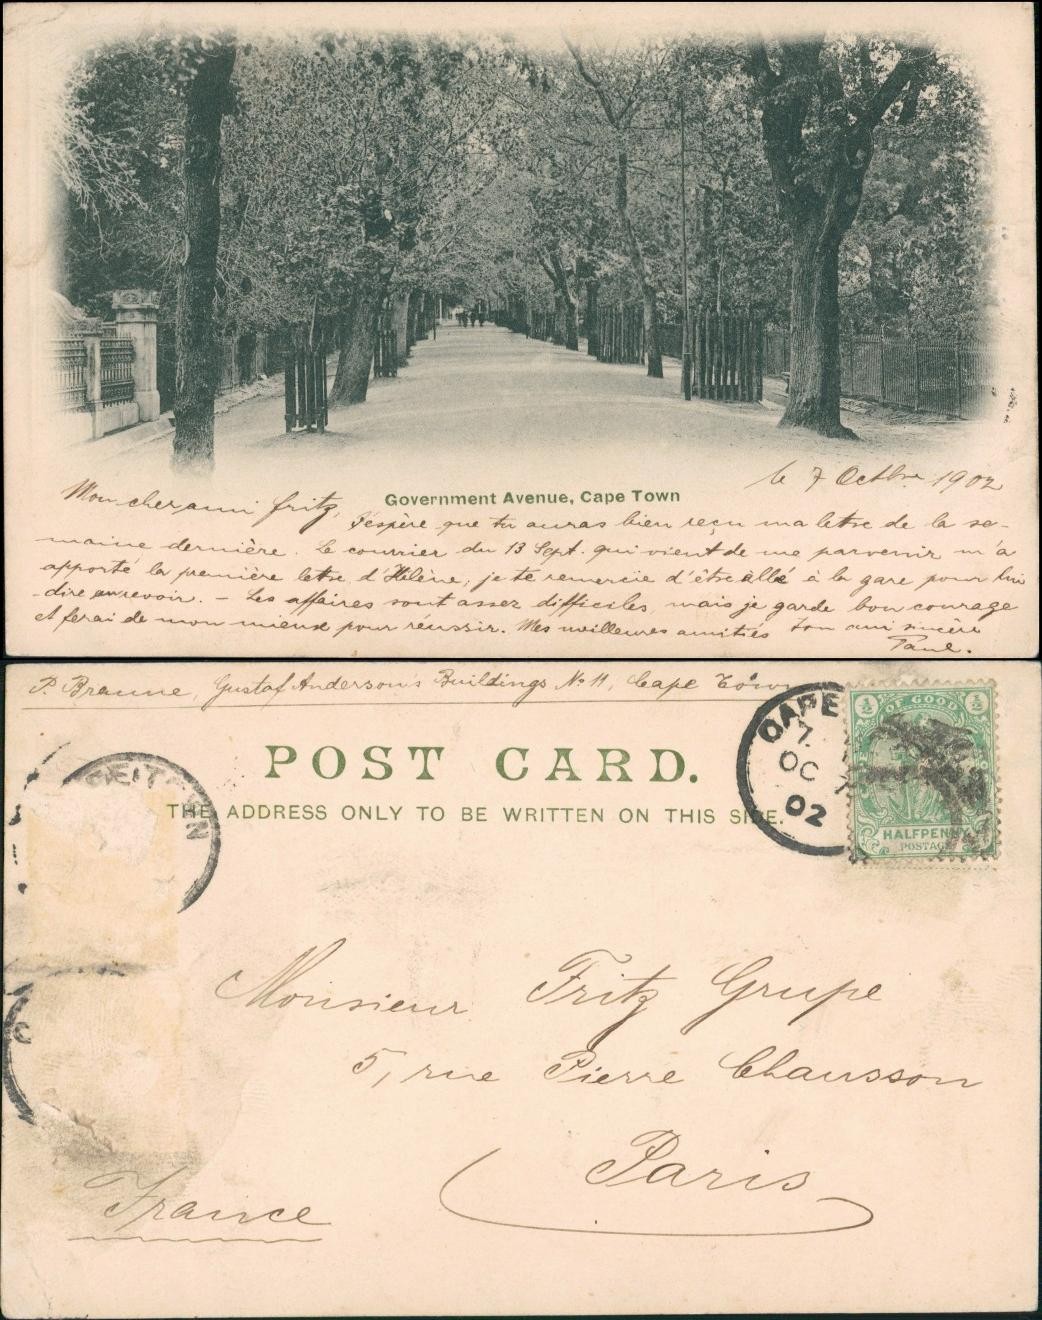 le 7 Octbre 1902
Mon cher ami Fritz,
Government Avenue, Cape Town
J'espère que tu auras bien reçu ma lettre de la se-
maine dernière. Le courrier du 13 Sept. qui vient de me parvenir m'a
apporté la première lettre d'Hélène; je te remercie d'être allé à la gare pour lui
dire au revoir. – Les affaires sont assez difficiles, mais je garde bon courage
et ferai de mon mieux pour réussir. Mes meilleures amitiés ton ami sincère
Paul.
P. Braune, Gustaf Anderson's Buildings No 11, Cape Town
POST CARD.
THE ADDRESS ONLY TO BE WRITTEN ON THIS SIDE.
CAPE
7.
OC 7
02
½ OF GOOD ½
HALFPENNY
POSTAGE
Monsieur Fritz Grupe
5, rue Pierre Chausson
Paris
France